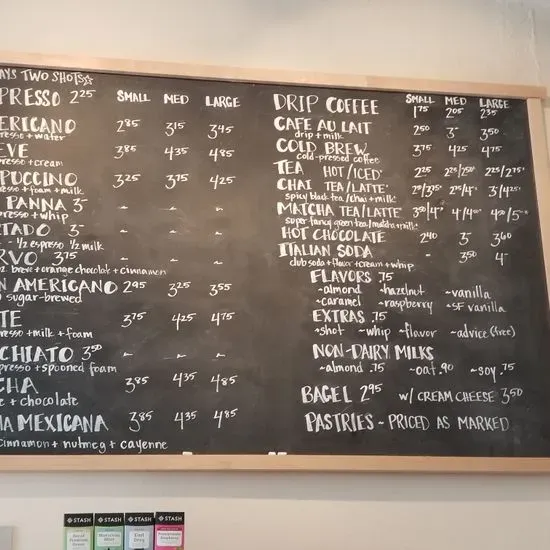 AYS TWO SHOTS☆
PRESSO 2.25 SMALL MED LARGE
ERICANO 2.85 3.15 3.45
presso + water
EVE 3.85 4.35 4.85
presso + cream
PUCCINO 3.25 3.75 4.25
presso + foam + milk
PANNA 3- - - -
presso + whip
TADO 3- - - -
- 1/2 espresso 1/2 milk
RVO 3.75 - - -
brew + orange chocolate + cinnamon
N AMERICANO 2.95 3.25 3.55
sugar-brewed
TE 3.75 4.25 4.75
presso + milk + foam
CHIATO 3.50 - - -
presso + spooned foam
CHA 3.85 4.35 4.85
e + chocolate
HA MEXICANA 3.85 4.35 4.85
cinnamon + nutmeg + cayenne
SMALL MED LARGE
DRIP COFFEE 1.75 2.05 2.35
CAFE AU LAIT 2.50 3- 3.50
drip + milk
COLD BREW 3.75 4.25 4.75
cold-pressed coffee
TEA HOT/ICED 2.25 2.25/2.50 2.25/2.75
CHAI TEA/LATTE
spicy black tea/chai + milk
MATCHA TEA/LATTE
super fancy green tea/matcha + milk
HOT CHOCOLATE 2.40 3- 3.60
ITALIAN SODA - 3.50 4-
club soda + flavor + cream + whip
FLAVORS .75
~almond ~hazelnut ~vanilla
~caramel ~raspberry ~SF vanilla
EXTRAS .75
~shot ~whip ~flavor ~advice (free)
NON-DAIRY MILKS
~almond .75 ~oat .90 ~soy .75
BAGEL 2.95 w/ CREAM CHEESE 3.50
PASTRIES ~ PRICED AS MARKED
STASH STASH STASH STASH
Earl Grey